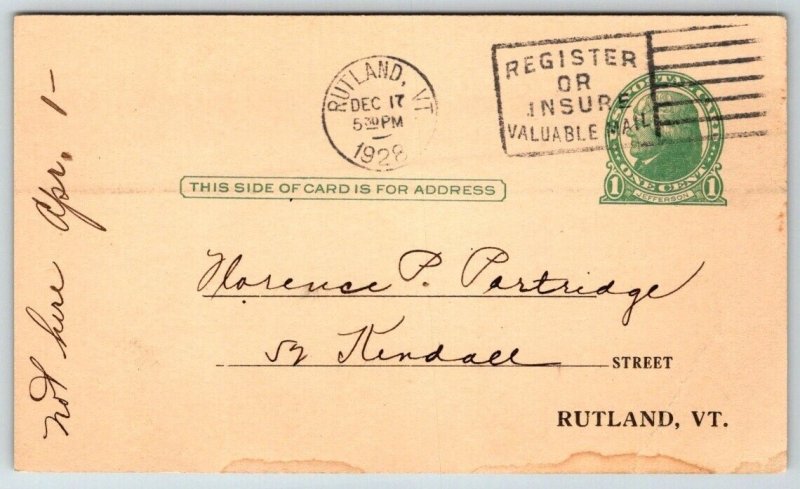 RUTLAND, VT.
DEC 17
5 30 PM
1928
REGISTER
OR
INSURE
VALUABLE MAIL
U.S. POSTAGE
ONE CENT
1 1
JEFFERSON
THIS SIDE OF CARD IS FOR ADDRESS
Not here Apr. 1-
Florence P. Partridge
52 Kendall STREET
RUTLAND, VT.